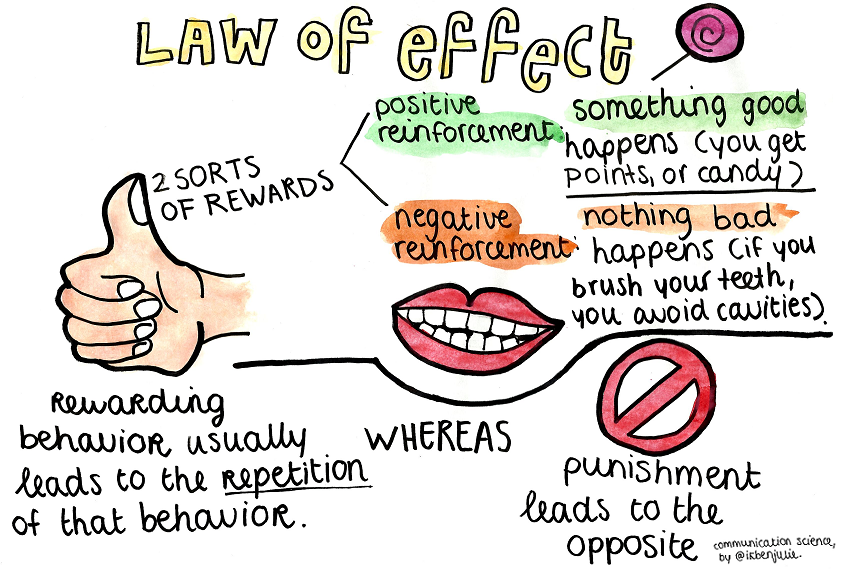 LAW OF effect
2 SORTS
OF REWARDS
positive
reinforcement:
something good
happens (you get
points, or candy)
negative
reinforcement:
nothing bad
happens (if you
brush your teeth,
you avoid cavities).
Rewarding
behavior usually
leads to the repetition
of that behavior.
WHEREAS
punishment
leads to the
opposite
communication science,
by @ikbenjulie.